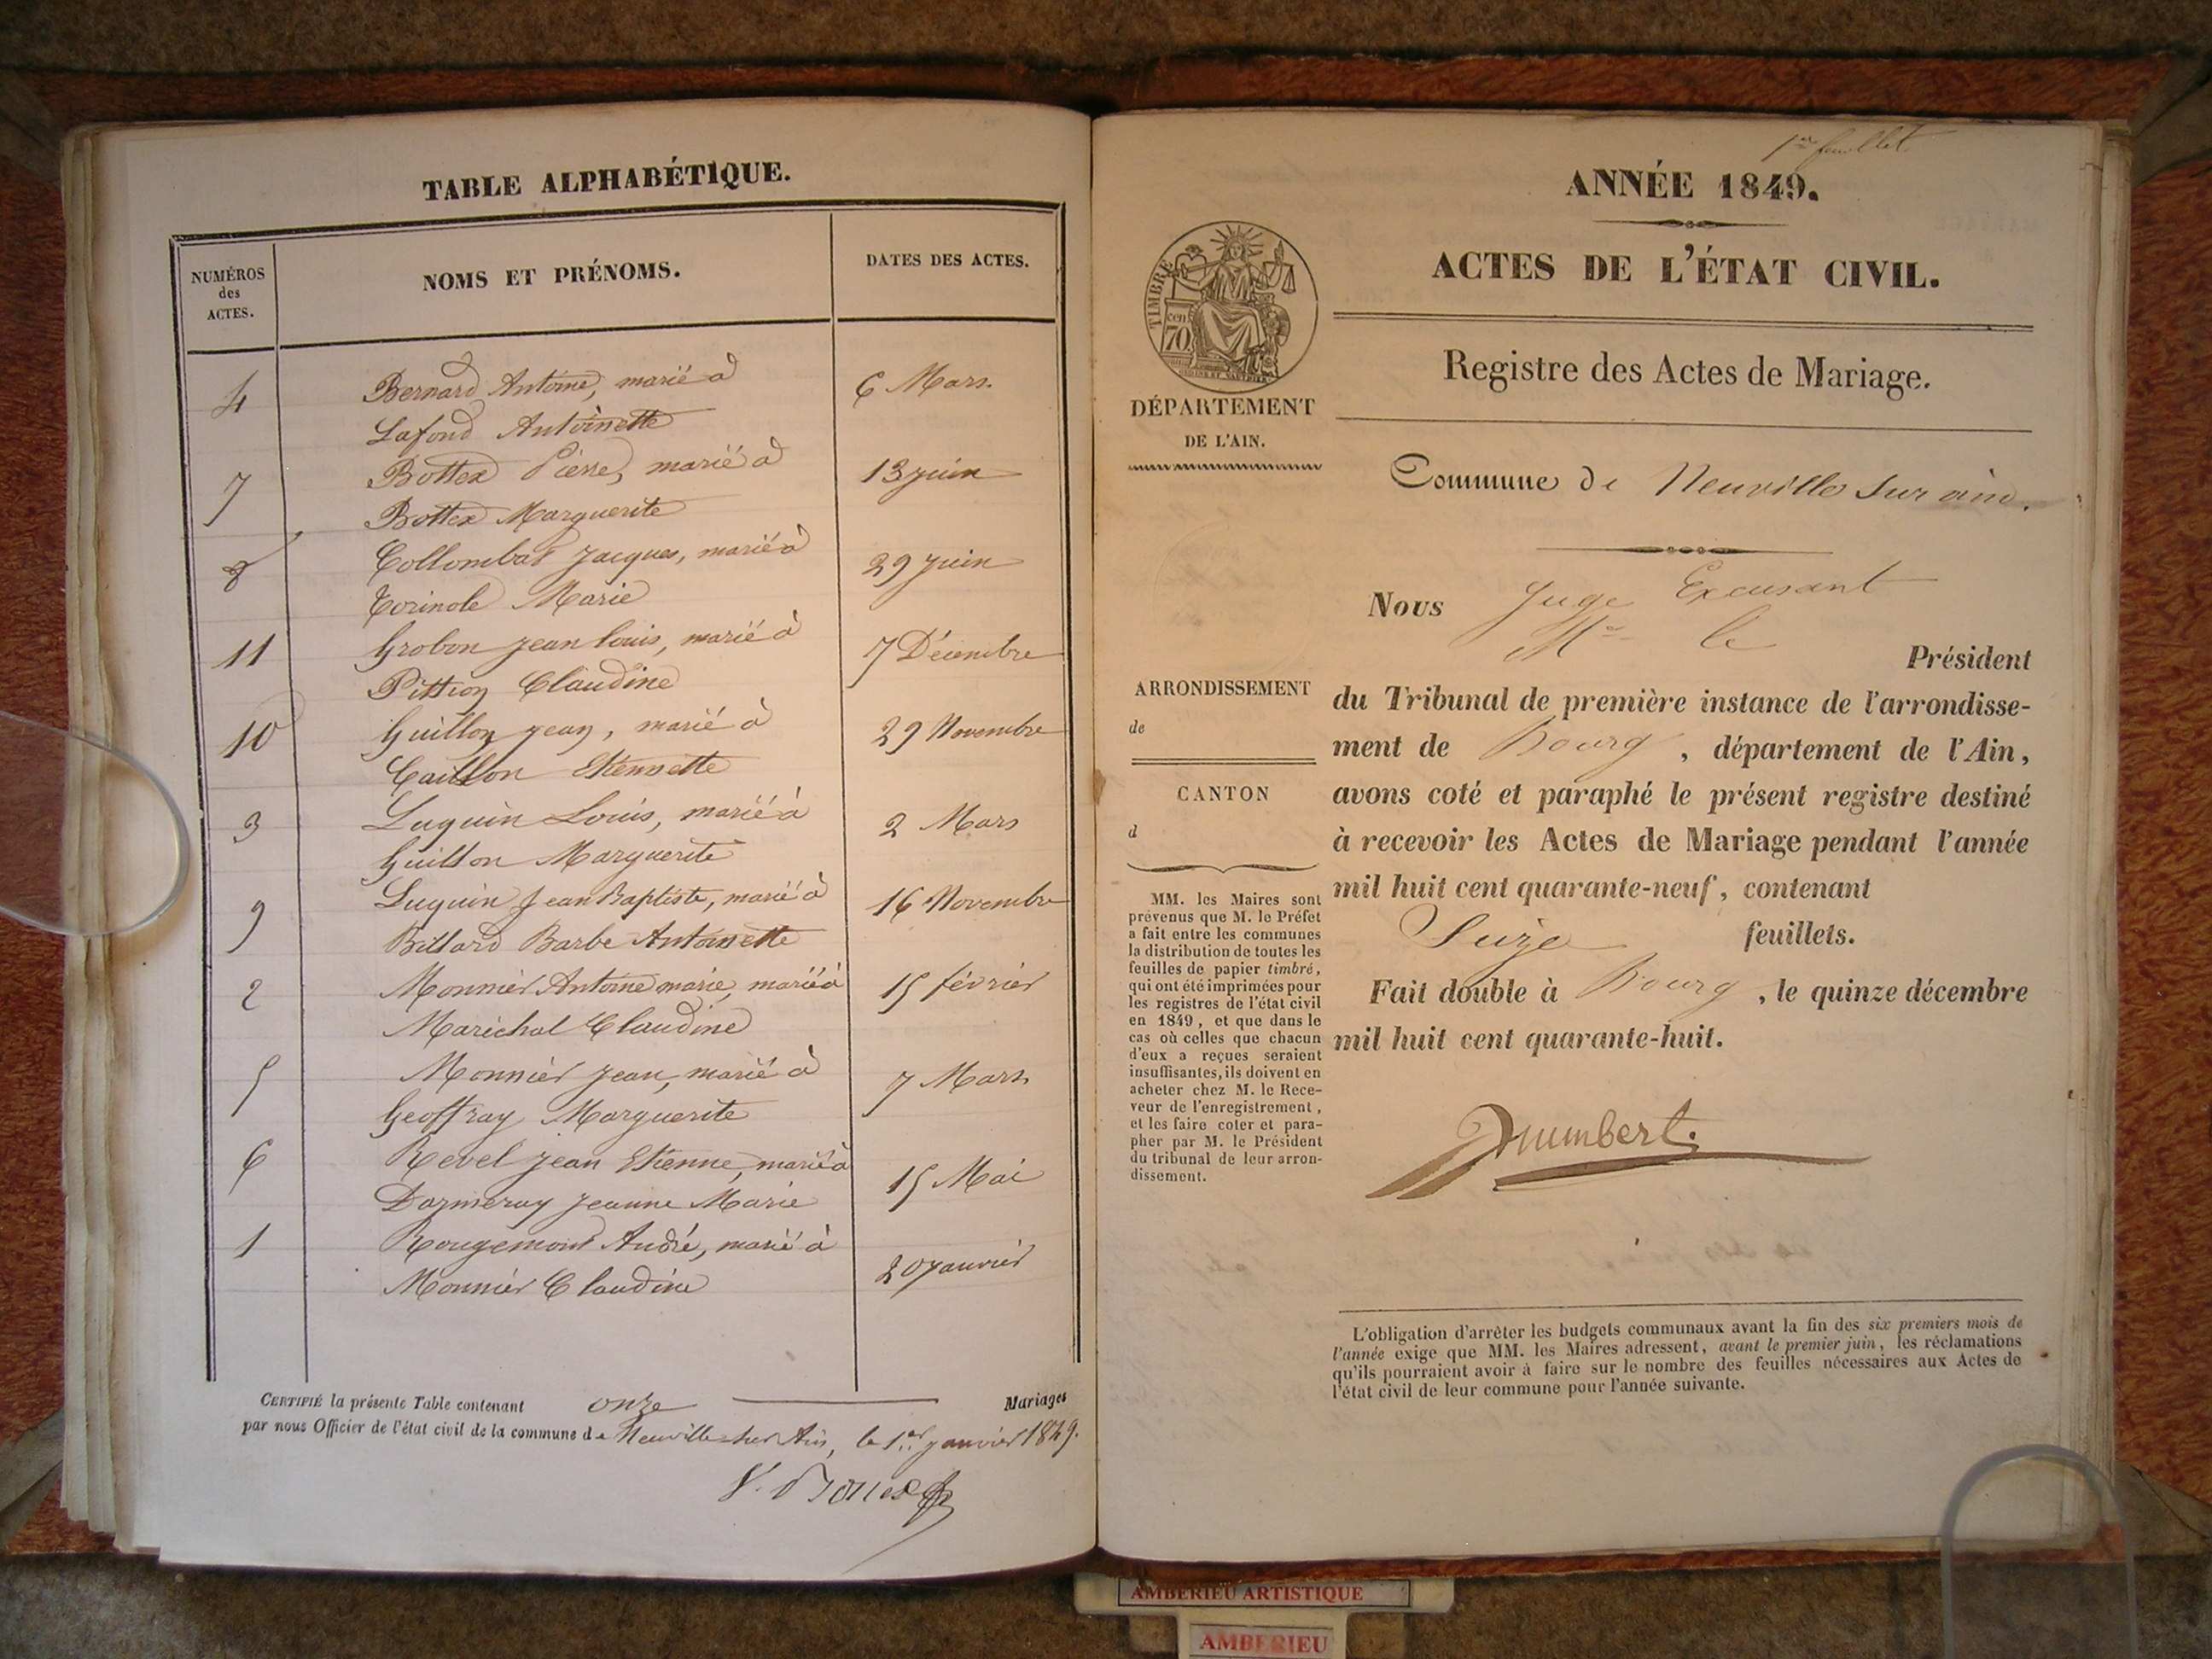 TABLE ALPHABÉTIQUE.
NUMÉROS des ACTES. NOMS ET PRÉNOMS. DATES DES ACTES.
4 Bernard Antoine, marié à 6 Mars.
Lafond Antoinette
7 Bottex Pierre, marié à 13 juin
Bottex Marguerite
8 Collombat Jacques, marié à 29 juin
Marie
11 Grobon jean louis, marié à 7 Décembre
Pittion Claudine
10 Guillon jean, marié à 29 Novembre
Caillon Etiennette
3 Luguin Louis, marié à 2 Mars
Guillon Marguerite
9 Luguin Jean Baptiste, marié à 16 Novembre
Billard Barbe Antoinette
2 Monnier Antoine marie, marié à 15 février
Maréchal Claudine
5 Monnier jean, marié à 7 Mars
Geoffray Marguerite
6 Revel jean Etienne, marié à 15 Mai
Jeanne Marie
1 Rougemont André, marié à 20 janvier
Monnier Claudine
CERTIFIÉ la présente Table contenant onze Mariages
par nous Officier de l'état civil de la commune de Neuville-sur-Ain, le 1er janvier 1849.
1er feuillet
ANNÉE 1849.
ACTES DE L'ÉTAT CIVIL.
TIMBRE
cen
70
DÉPARTEMENT
DE L'AIN.
Registre des Actes de Mariage.
Commune de Neuville sur ain.
Nous Juge Excusant
Mr le
Président
du Tribunal de première instance de l'arrondisse-
ment de Bourg, département de l'Ain,
avons coté et paraphé le présent registre destiné
à recevoir les Actes de Mariage pendant l'année
mil huit cent quarante-neuf, contenant
Seize feuillets.
Fait double à Bourg, le quinze décembre
mil huit cent quarante-huit.
ARRONDISSEMENT
de
CANTON
d
MM. les Maires sont
prévenus que M. le Préfet
a fait entre les communes
la distribution de toutes les
feuilles de papier timbré,
qui ont été imprimées pour
les registres de l'état civil
en 1849, et que dans le
cas où celles que chacun
d'eux a reçues seraient
insuffisantes, ils doivent en
acheter chez M. le Rece-
veur de l'enregistrement,
et les faire coter et para-
pher par M. le Président
du tribunal de leur arron-
dissement.
L'obligation d'arrêter les budgets communaux avant la fin des six premiers mois de
l'année exige que MM. les Maires adressent, avant le premier juin, les réclamations
qu'ils pourraient avoir à faire sur le nombre des feuilles nécessaires aux Actes de
l'état civil de leur commune pour l'année suivante.
AMBERIEU ARTISTIQUE
AMBERIEU